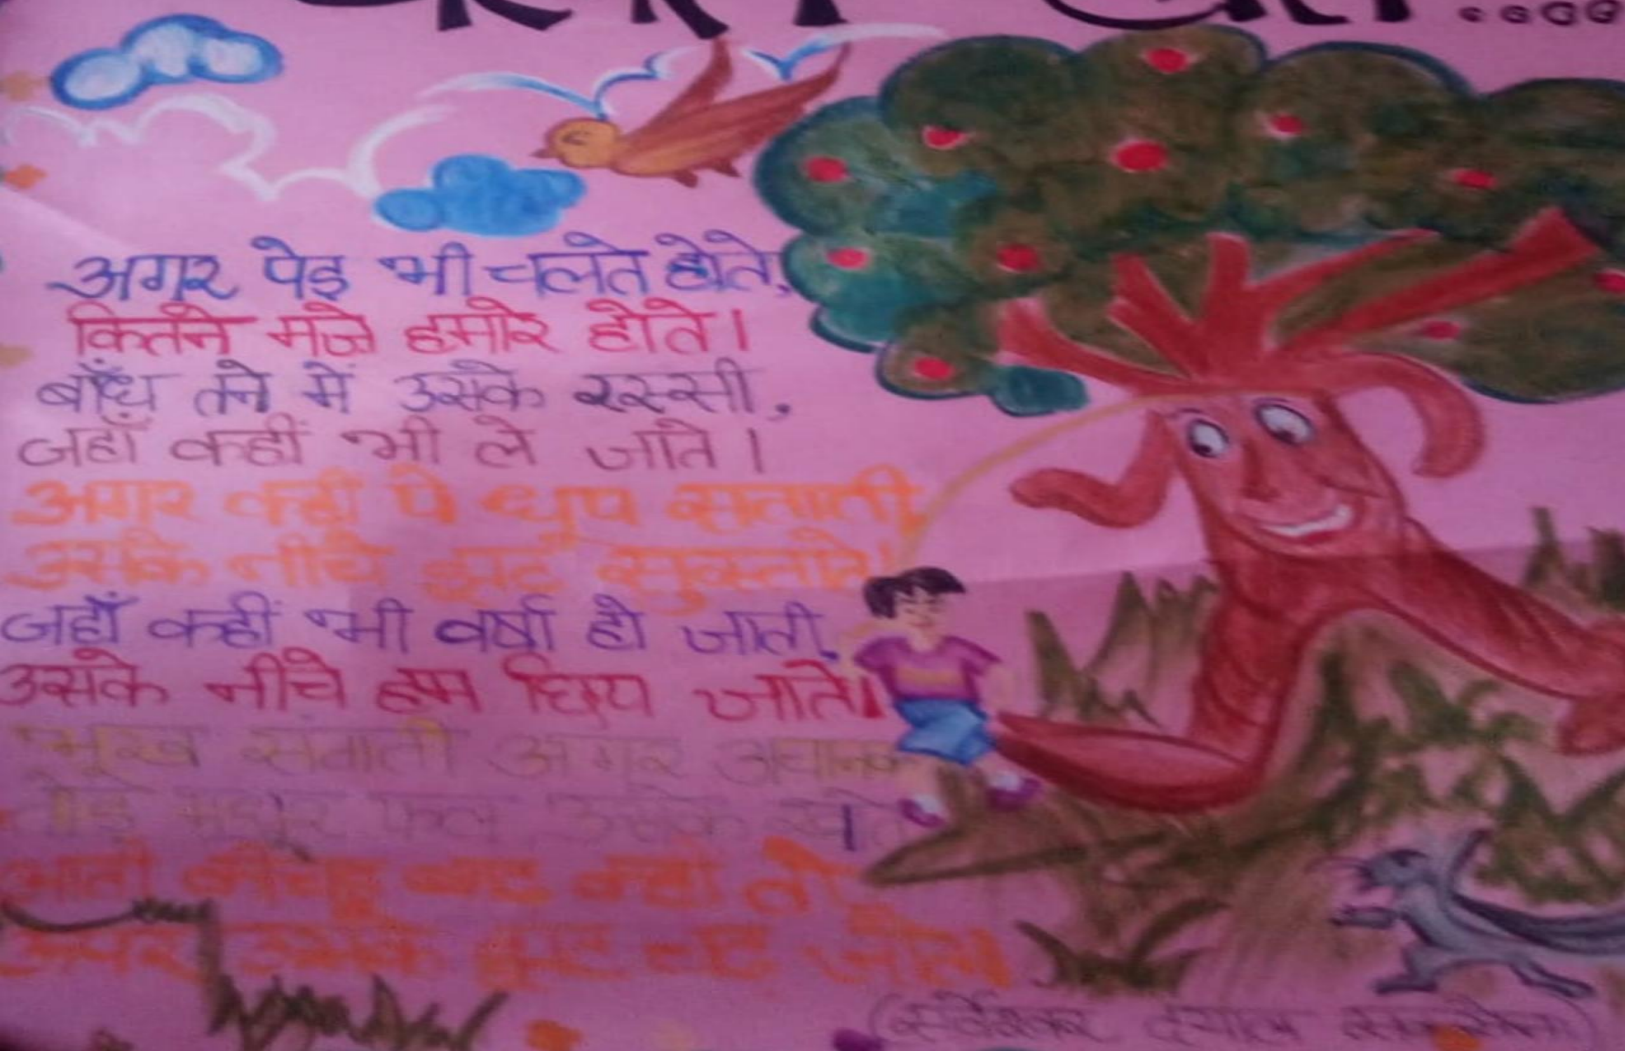 अगर पेड़ भी चलते होते,
कितने मजे हमारे होते।
बाँध तने में उसके रस्सी,
जहाँ कहीं भी ले जाते।
अगर कहीं पे धूप सताती,
उसके नीचे झट सुस्ताते।
जहाँ कहीं भी वर्षा हो जाती,
उसके नीचे हम छिप जाते।
भूख सताती अगर अचानक
तोड़ मधुर फल उसके खाते।
आती कीचड़ बाढ़ कहीं तो
ऊपर उसके झट चढ़ जाते।
(सर्वेश्वर दयाल सक्सेना)